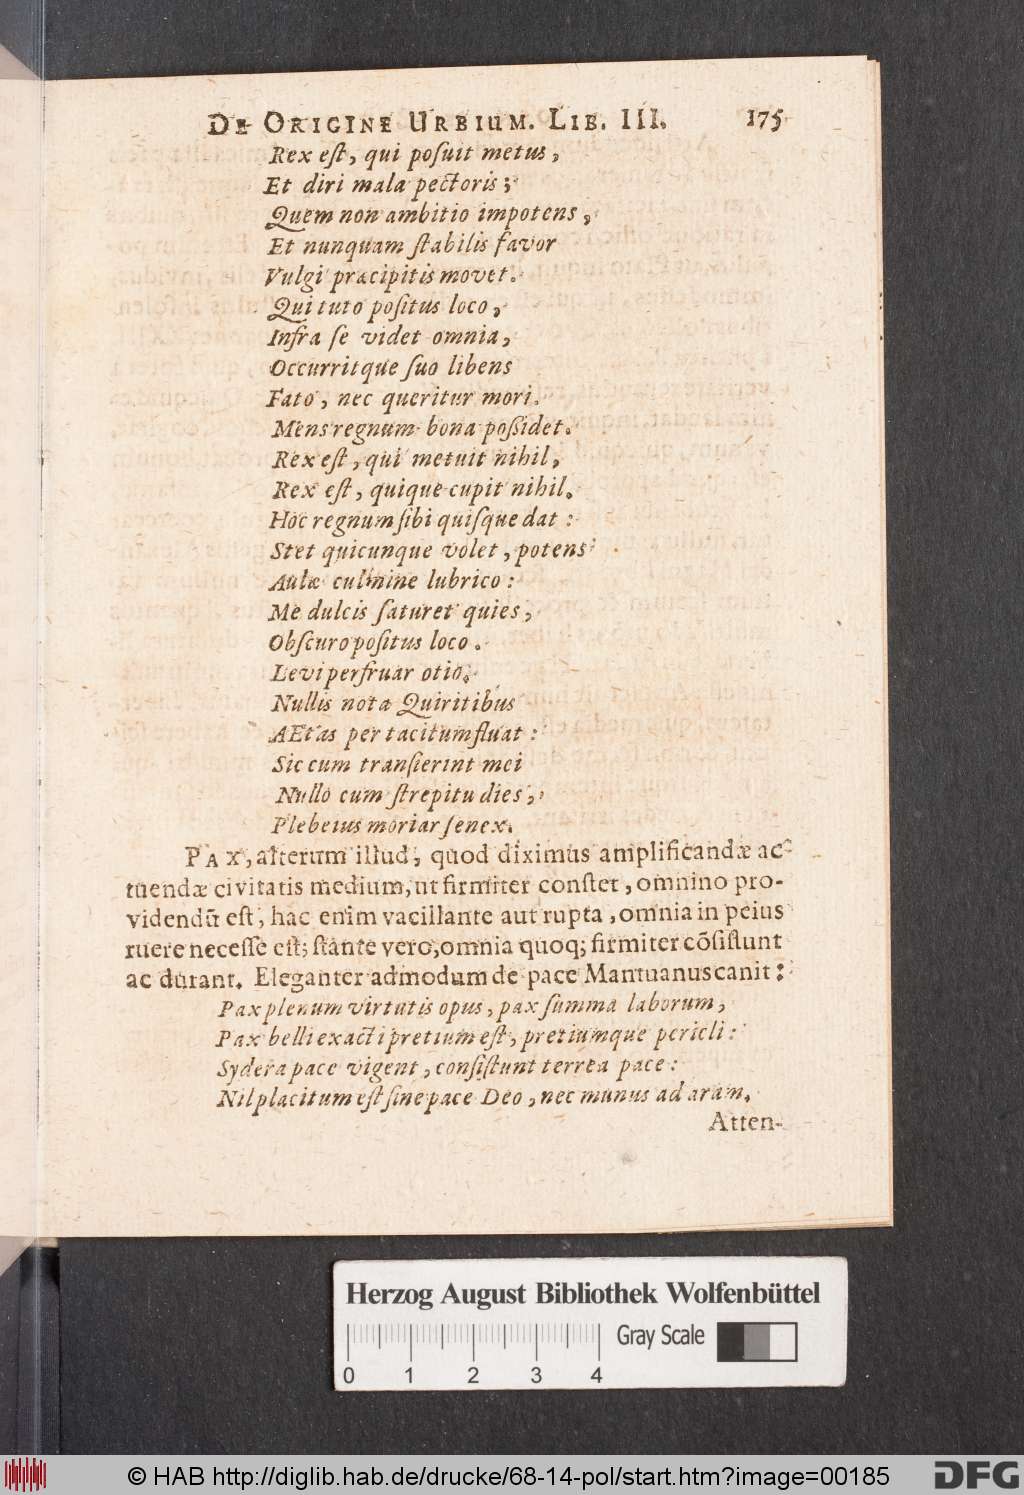 DE ORIGINE URBIUM. LIB. III. 175
Rex eſt, qui poſuit metus,
Et diri mala pectoris;
Quem non ambitio impotens,
Et nunquam ſtabilis favor
Vulgi præcipitis movet.
Qui tuto poſitus loco,
Infra ſe videt omnia,
Occurritque ſuo libens
Fato, nec queritur mori.
Mens regnum bona poßidet.
Rex eſt, qui metuit nihil,
Rex eſt, quique cupit nihil.
Hoc regnum ſibi quiſque dat:
Stet quicunque volet, potens
Aulæ culmine lubrico:
Me dulcis ſaturet quies,
Obſcuro poſitus loco.
Levi perfruar otio.
Nullis nota Quiritibus
AEtas per tacitum fluat:
Sic cum tranſierint mei
Nullo cum ſtrepitu dies,
Plebeius moriar ſenex.
PAX, alterum illud, quod diximus amplificandæ ac
tuendæ civitatis medium, ut firmiter conſtet, omnino pro-
videndũ eſt, hac enim vacillante aut rupta, omnia in peius
ruere neceſſe eſt; ſtante vero, omnia quoq; firmiter cõſiſtunt
ac durant. Eleganter admodum de pace Mantuanus canit:
Pax plenum virtutis opus, pax ſumma laborum,
Pax belli exacti pretium eſt, pretiumque pericli:
Sydera pace vigent, conſiſtunt terrea pace:
Nil placitum eſt ſine pace Deo, nec munus ad aram.
Atten-
Herzog August Bibliothek Wolfenbüttel
Gray Scale
0 1 2 3 4
© HAB http://diglib.hab.de/drucke/68-14-pol/start.htm?image=00185
DFG